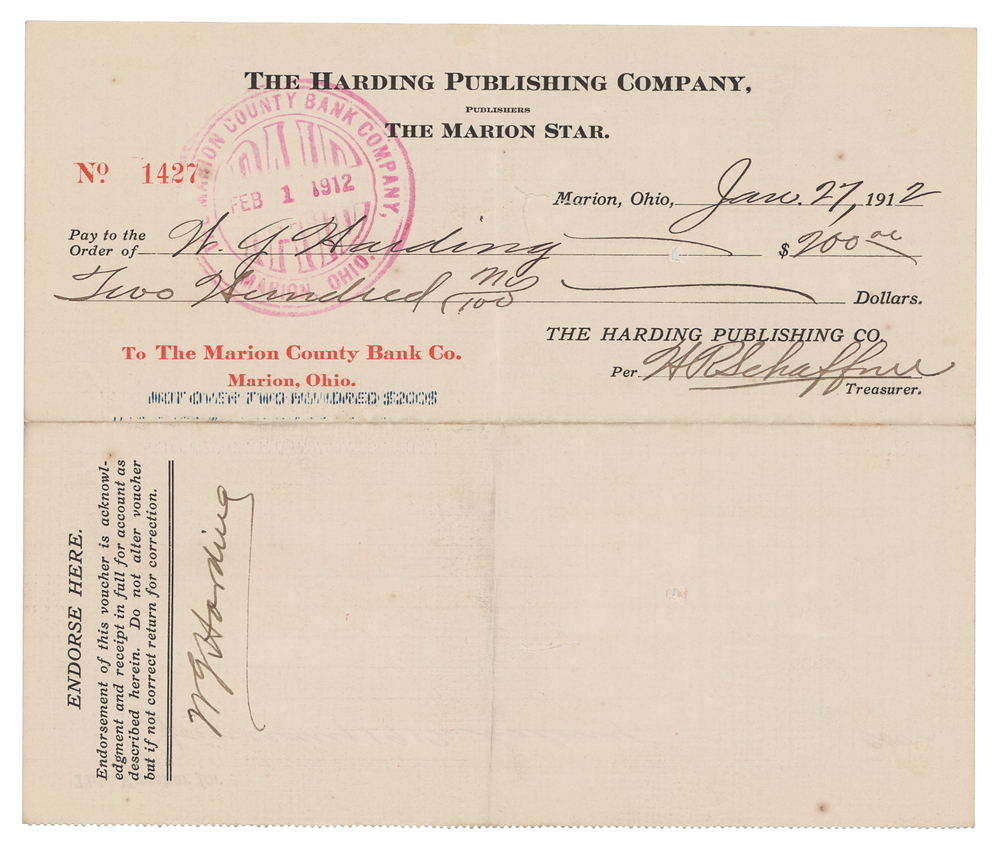 THE HARDING PUBLISHING COMPANY,
PUBLISHERS
THE MARION STAR.
No 1427
MARION COUNTY BANK COMPANY,
PAID
FEB 1 1912
MARION, OHIO.
Marion, Ohio, Jan. 27, 1912
Pay to the
Order of W. G Harding $200 00
Two Hundred no/100 Dollars.
THE HARDING PUBLISHING CO.
To The Marion County Bank Co.
Marion, Ohio.
Per HRSchaffner
Treasurer.
NOT OVER TWO HUNDRED $200$
ENDORSE HERE.
Endorsement of this voucher is acknowl-
edgment and receipt in full for account as
described herein. Do not alter voucher
but if not correct return for correction.
W G Harding